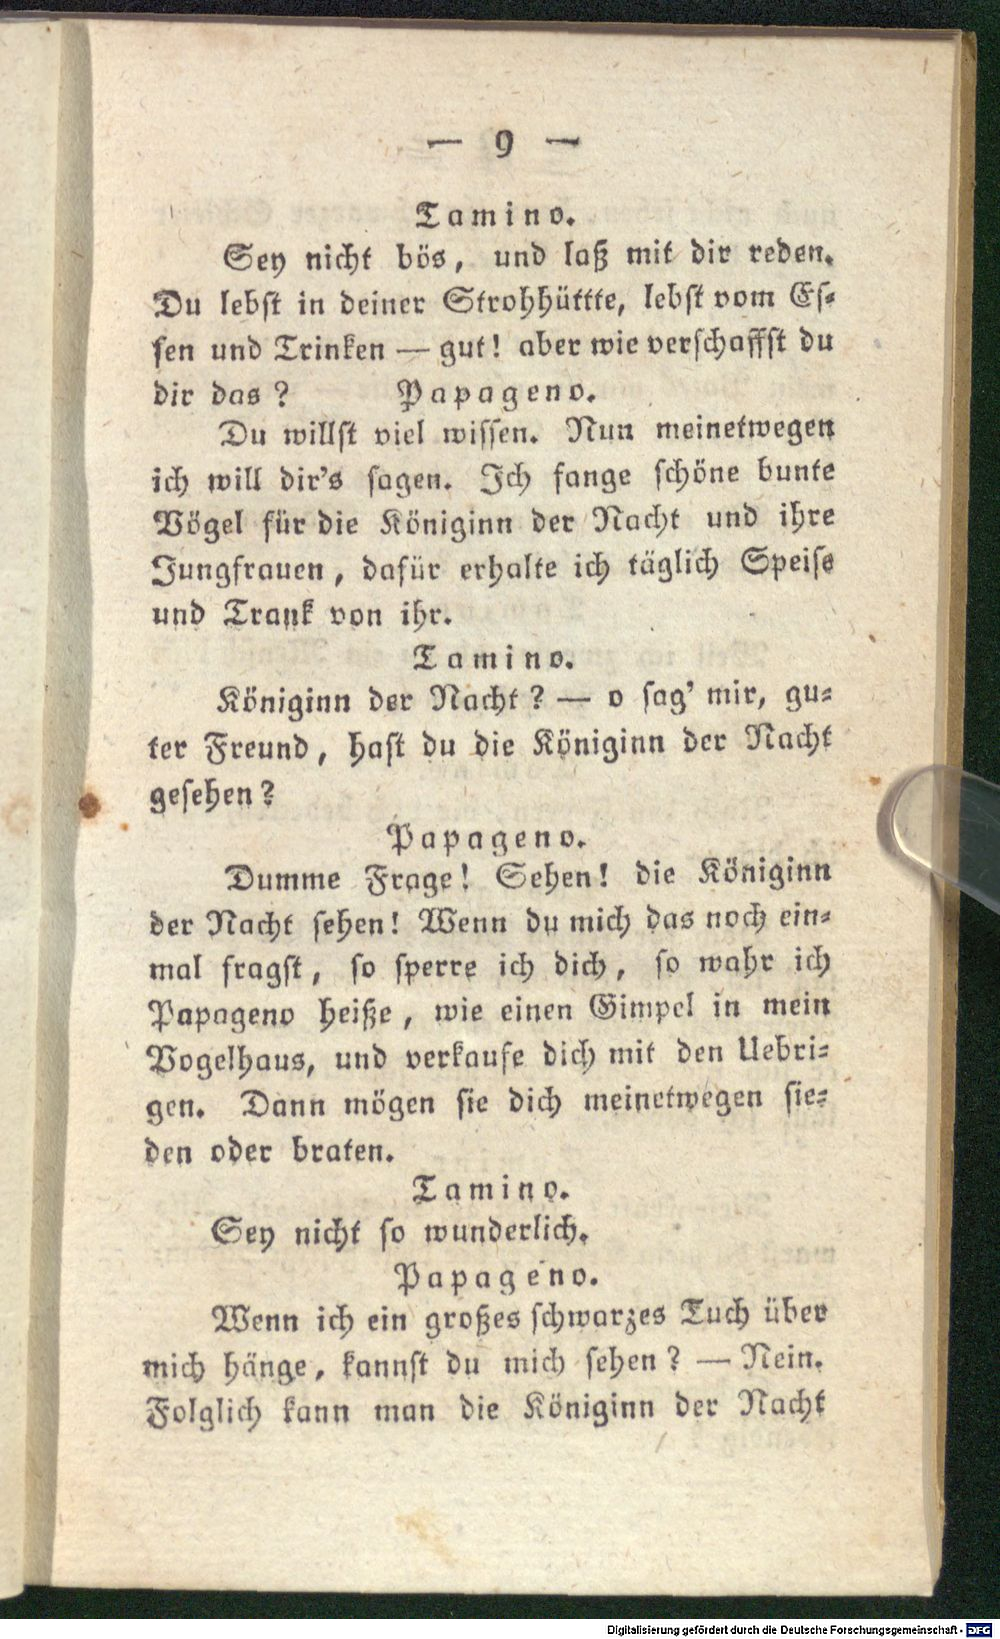 — 9 —
Tamino.
Sey nicht bös, und laß mit dir reden.
Du lebst in deiner Strohhüttte, lebst vom Es-
sen und Trinken — gut! aber wie verschaffst du
dir das? Papageno.
Du willst viel wissen. Nun meinetwegen
ich will dir's sagen. Ich fange schöne bunte
Vögel für die Königinn der Nacht und ihre
Jungfrauen, dafür erhalte ich täglich Speise
und Trank von ihr.
Tamino.
Königinn der Nacht? — o sag' mir, gu-
ter Freund, hast du die Königinn der Nacht
gesehen?
Papageno.
Dumme Frage! Sehen! die Königinn
der Nacht sehen! Wenn du mich das noch ein-
mal fragst, so sperre ich dich, so wahr ich
Papageno heiße, wie einen Gimpel in mein
Vogelhaus, und verkaufe dich mit den Uebri-
gen. Dann mögen sie dich meinetwegen sie-
den oder braten.
Tamino.
Sey nicht so wunderlich.
Papageno.
Wenn ich ein großes schwarzes Tuch über
mich hänge, kannst du mich sehen? — Nein.
Folglich kann man die Königinn der Nacht
Digitalisierung gefördert durch die Deutsche Forschungsgemeinschaft - DFG